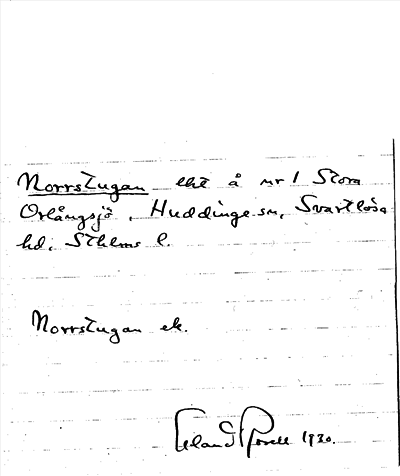 Norrstugan lht å nr 1 Stora
Orlångsjö, Huddinge sn, Svartlösa
hd, Sthlms l.
Norrstugan ek.
1930.